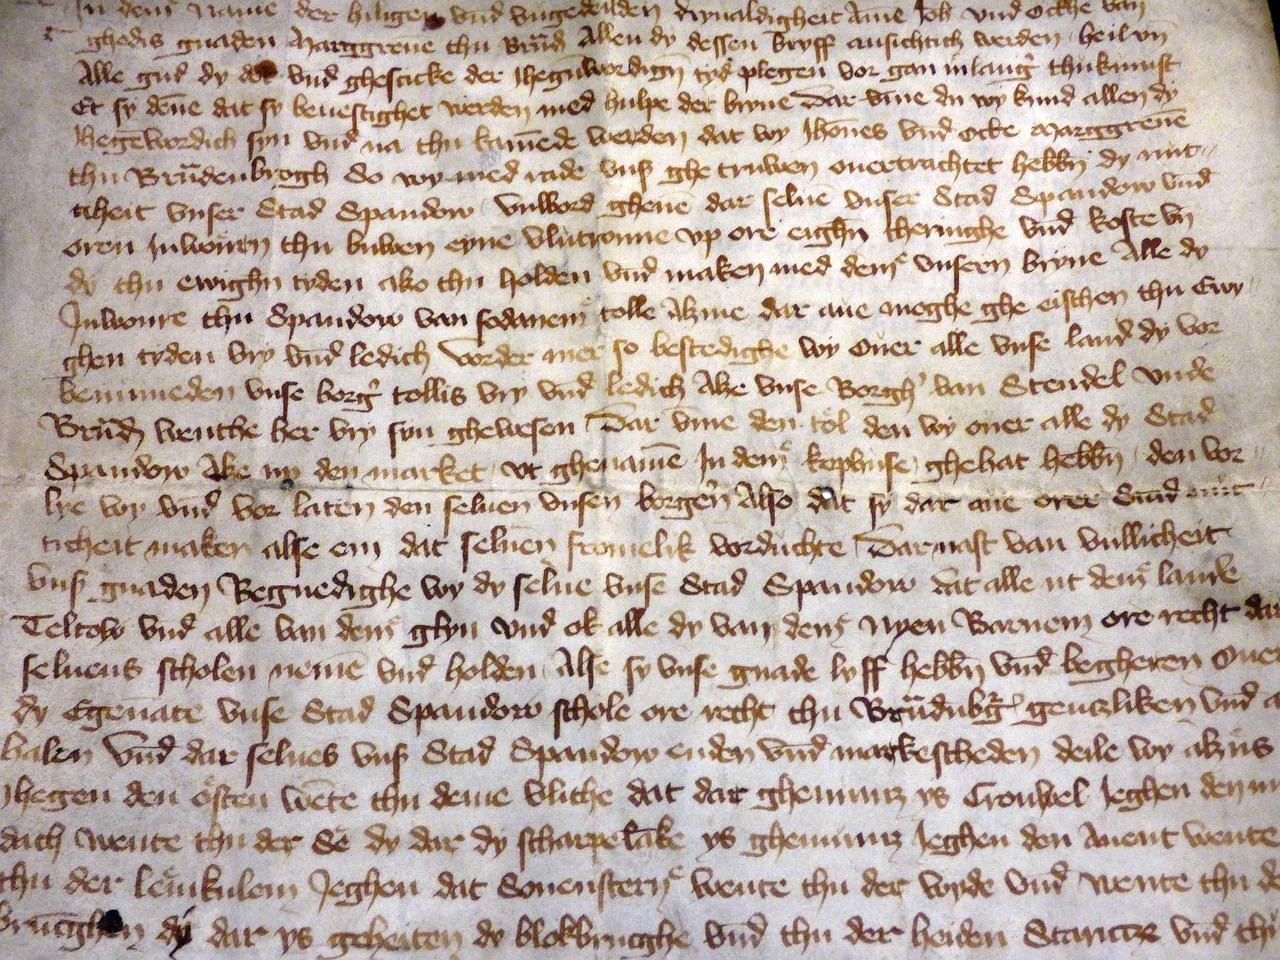 In dem name der hiligen vnd vngedeilden dryualdigheit Ame Joh vnd Ockhe van
ghodis gnaden Marggreue thu Brand Allen dy dessen bryff ansichtich werden heil vn
Alle gud dy vnd ghescicke der Jhegenwordign tyd plegen vor gan in langr thukumst
Et sy dene dat sy beuestighet werden med hulpe der bryue Dar vme du wy kund allen dy
Jhegewordich syn vnd na thu kamede werden dat wy Johnes vnd Ocke Marggreue
thu Brandenbrogh So wy med rade vns ghe truwen ouertrachtet hebbn dy nut
ticheit vnser Stad Spandow vulword gheue dar selue vnser Stad Spandow vnd
oren Inwonren thu buwen eyne vlutronne vp ore eighn theringhe vnd koste vn
dy thu ewighn tyden also thu holden vnd maken med dem vnsern bryue Alle dy
Inwonre thu Spandow van sodanem tolle Alzme dar aue moghe ghe eischen thu Ewy
ghen tyden vry vnd ledich Vorder mer so bestedighe wy Ouer alle vnse land dy vor
benumeden vnse borgr tollis vry vnd ledich Alze vnse Borghr van Stendel vnde
Brand wenthe her vry syn ghewesen Dar vme den tol den wy ouer alle dy Stad
Spandow Alze vp den market vt ghename In dem kophuse ghehat hebbn den vor
lye wy vnd vor laten den seluen vnsen borgern Also dat sy dar aue orer Stad nut
ticheit maken alse em dat seluen fromelik vorduchte Darnast van vullicheit
vns gnaden Begnedighe wy dy selue vnse Stad Spandow dat alle ut dem lande
Teltow vnd alle van dem glyn vnd ok alle dy van dem Nyen Barnem ore recht dar
seluens scholen neme vnd holden Alse sy vnse gnade lyff hebbn vnd begheren Ouer
dy Egenate vnse Stad Spandow schole ore recht thu Brandnbrg genczliken vnd
halen Vnd dar selues vns Stad Spandow enden vnd markescheden deile wy alzus
Jhegen den osten wete thu deme vlithe dat dar ghenumt ys Crouwel Jeghen den
dach wente thu der Se dy dar dy scharpelake ys ghenumt Jeghen den Auent wente
thu der lemkulem Jeghen dat Souenstern wente thu der wyde vnd wente thu
brucghen dy dar ys geheiten dy blokbrucghe vnd thu der heiden Staritze vnd thu